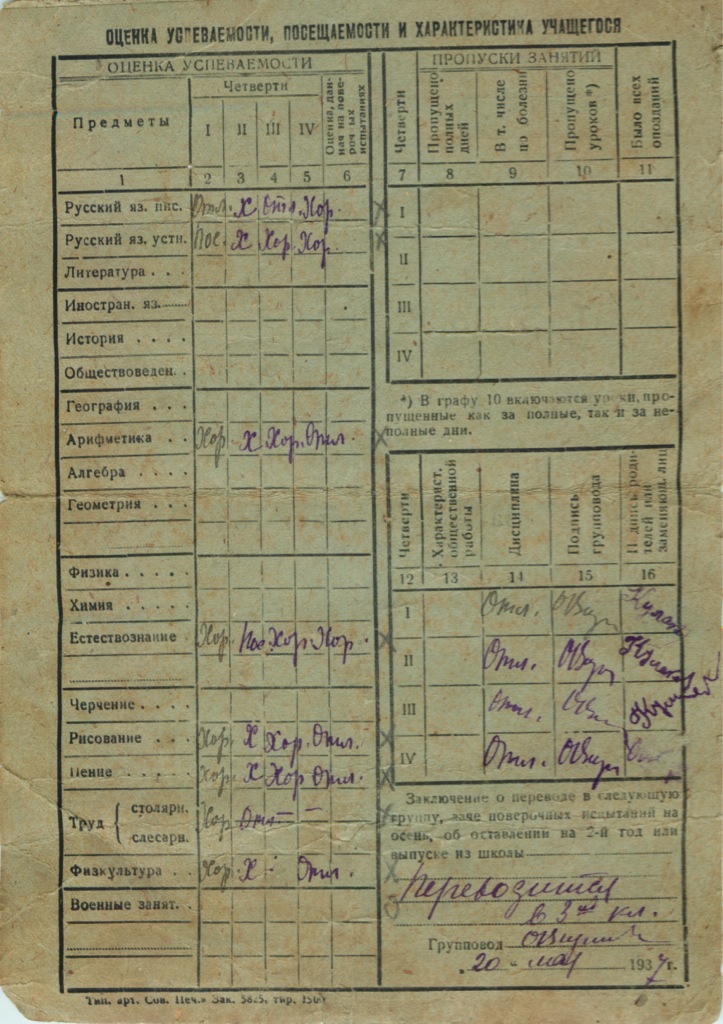 ОЦЕНКА УСПЕВАЕМОСТИ, ПОСЕЩАЕМОСТИ И ХАРАКТЕРИСТИКА УЧАЩЕГОСЯ
ОЦЕНКА УСПЕВАЕМОСТИ
Предметы
Четверти
I II III IV
Оценка, данная на поверочных испытаниях
1 2 3 4 5 6
Русский яз. пис. Отл. Х Отл. Хор.
Русский яз. устн. Пос. Х Хор. Хор.
Литература . . .
Иностран. яз.
История . . . .
Обществоведен. .
География . . .
Арифметика . . Хор. Х Хор. Отл.
Алгебра . . . .
Геометрия . . .
Физика . . . . .
Химия . . . . .
Естествознание Хор. Пос. Хор. Хор.
Черчение . . . .
Рисование . . . Хор. Х Хор. Отл.
Пение . . . . Хор. Х Хор Отл.
Труд { столярн.
слесарн.
Хор
Физкультура . . Хор. Х Отл.
Военные занят. .
Тип. арт. Сов. Печ.» Зак. 5825, тир. 1500
ПРОПУСКИ ЗАНЯТИЙ
Четверти
Пропущено полных дней
В т. числе по болезни
Пропущено уроков *)
Было всех опозданий
7 8 9 10 11
I
II
III
IV
*) В графу 10 включаются уроки, про-
пущенные как за полные, так и за не-
полные дни.
Четверти
Характерист. общественной работы
Дисциплина
Подпись групповода
П дпись роди-
телей или
заменяющ. лиц
12 13 14 15 16
I Отл.
II Отл.
III Отл.
IV Отл.
Заключение о переводе в следующую
группу, даче поверочных испытаний на
осень, об оставлений на 2-й год или
выпуске из школы
Переводится
в 3ий кл.
Групповод
„20" мая 1937 г.